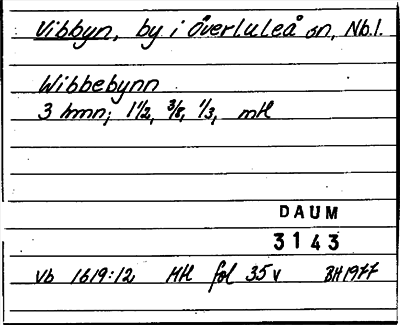 Vibbyn, by i överluleå sn, Nb.l.
Wibbebynn
3 hmn; 1 1/2, 3/8, 1/3, mtl
DAUM
3143
Vb 1619:12 Mtl fol 35 v BH 1977